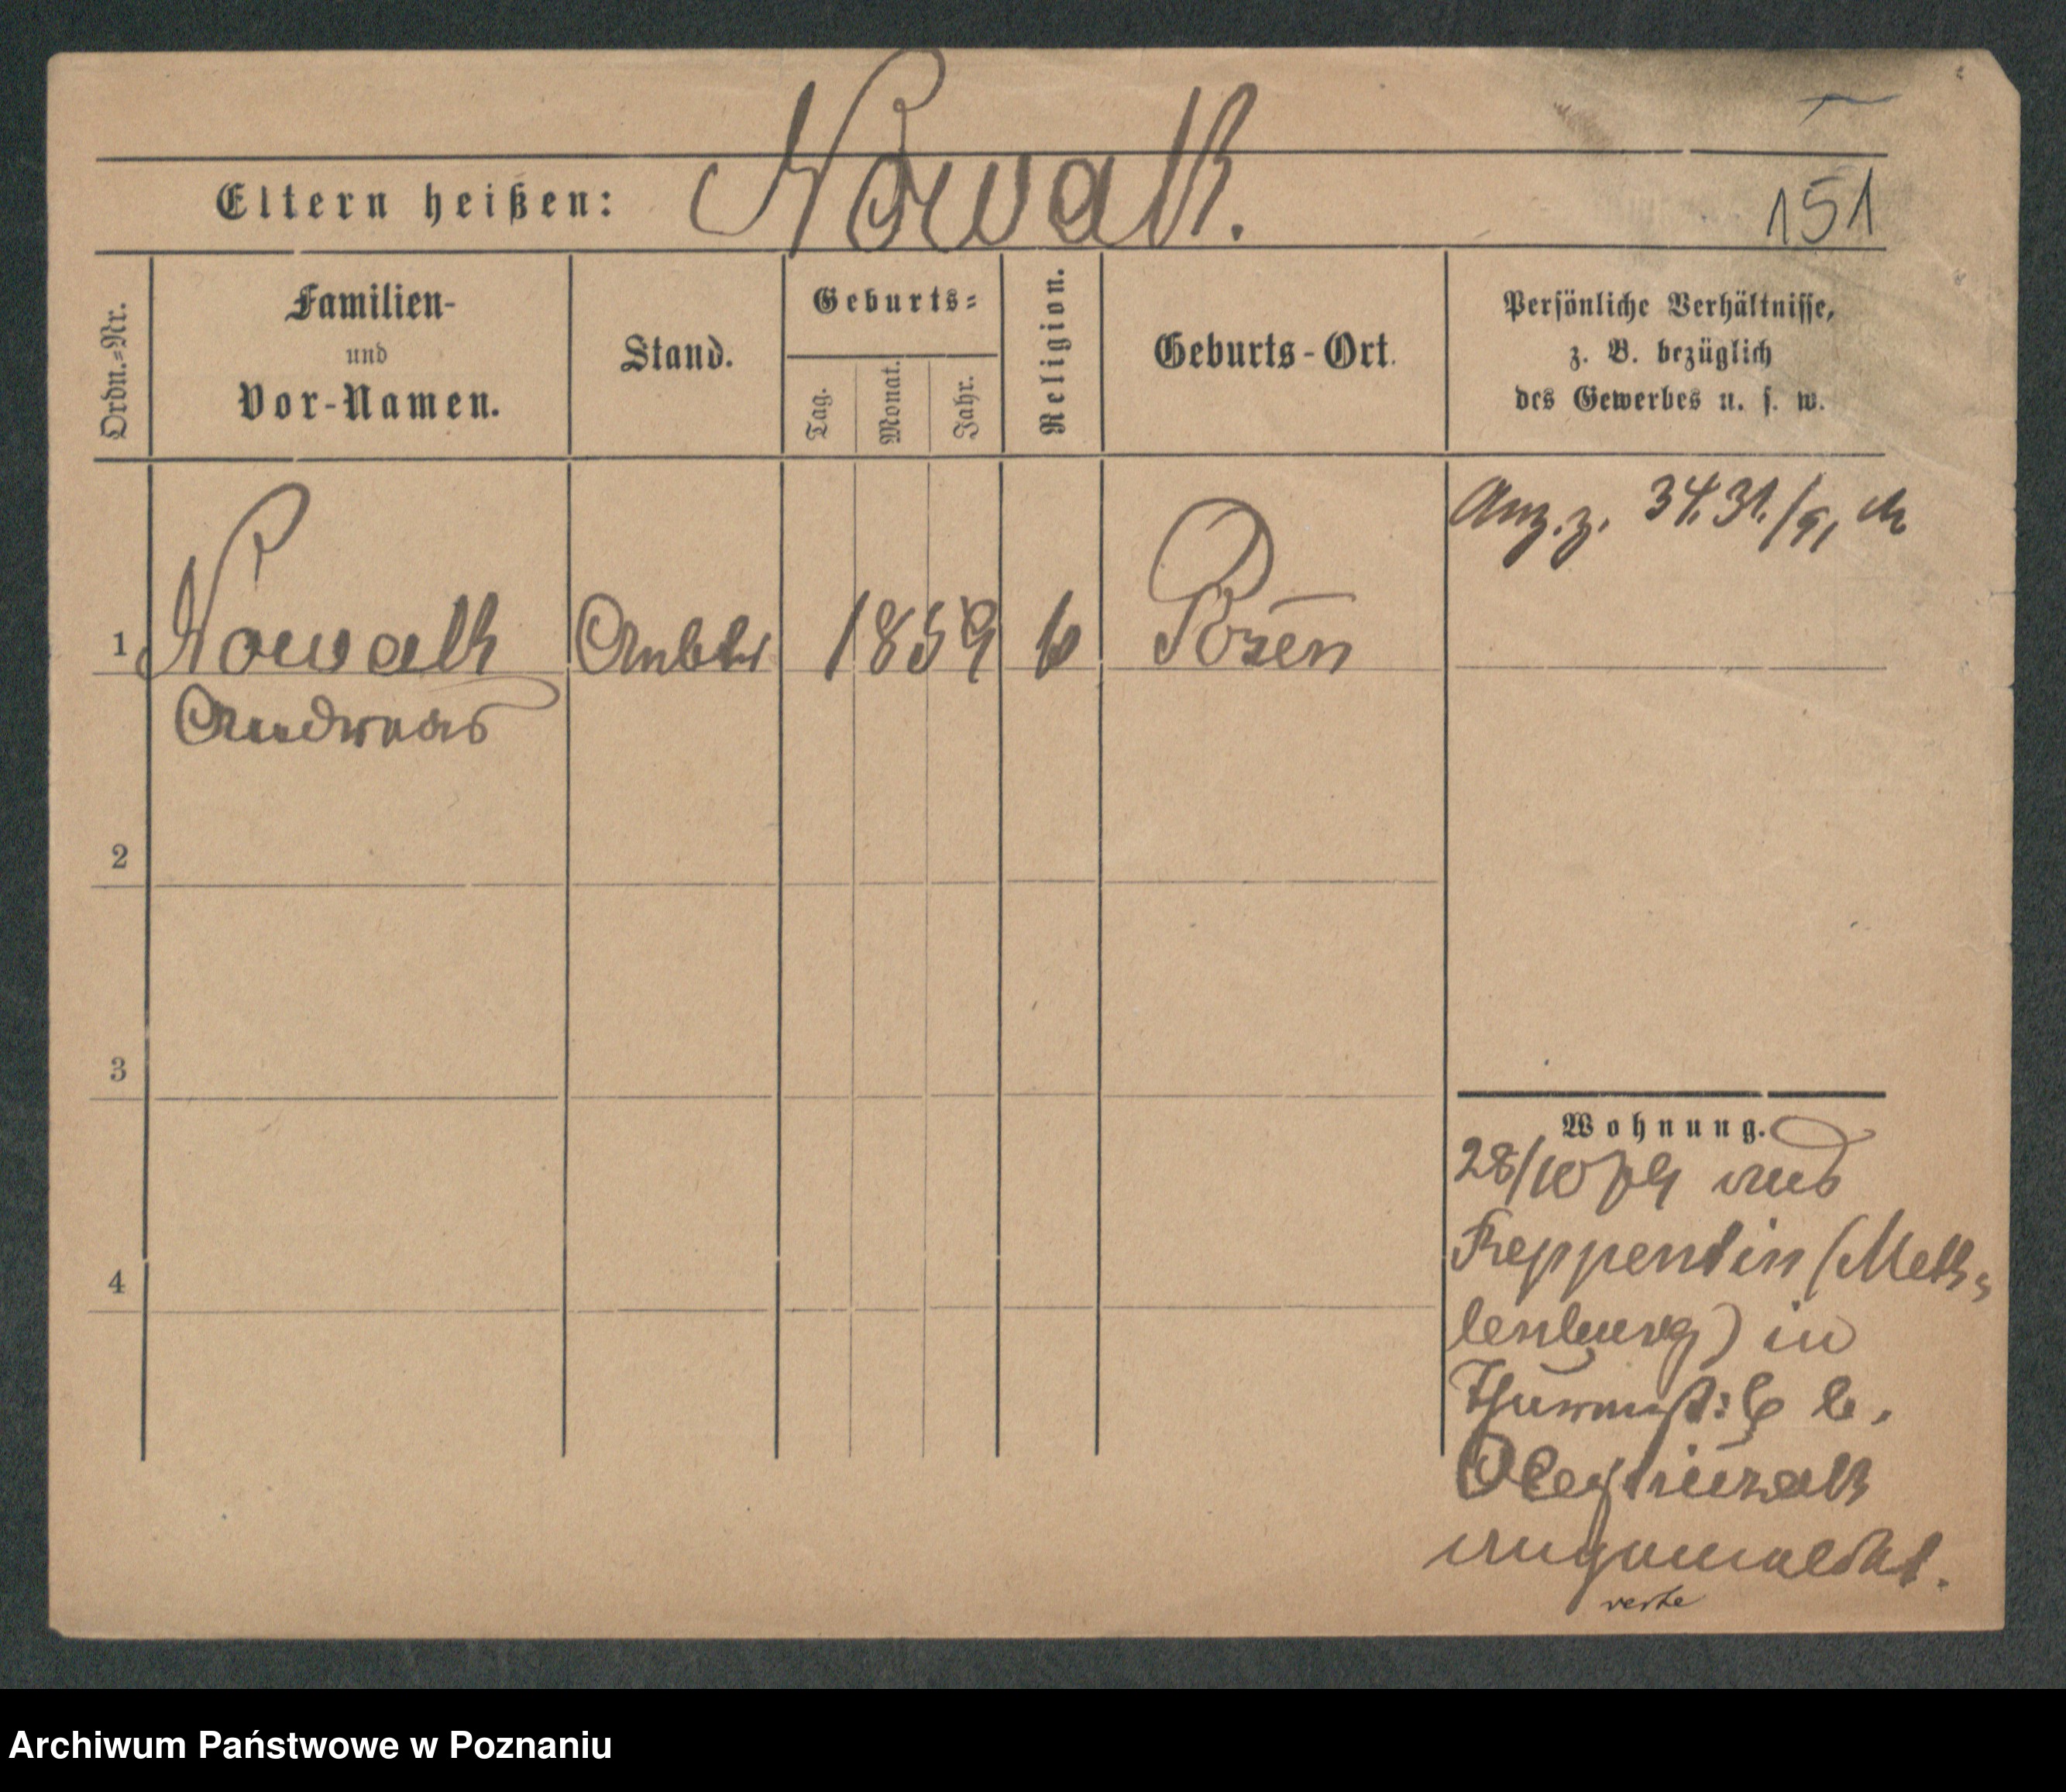 Eltern heißen: Nowak.
151
Ordn.-Nr.
Familien-
und
Vor-Namen.
Stand.
Geburts-
Tag.
Monat.
Jahr.
Religion.
Geburts-Ort.
Persönliche Verhältnisse,
z. B. bezüglich
des Gewerbes u. s. w.
Anz. z. 34.31./91
1 Nowak 1859 k Posen
Andreas
2
3
4
Wohnung.
28/10 aus
Reppentin (Meck-
lenburg) in
Thurmst: 6 b.
angemeldet.
verte
Archiwum Państwowe w Poznaniu